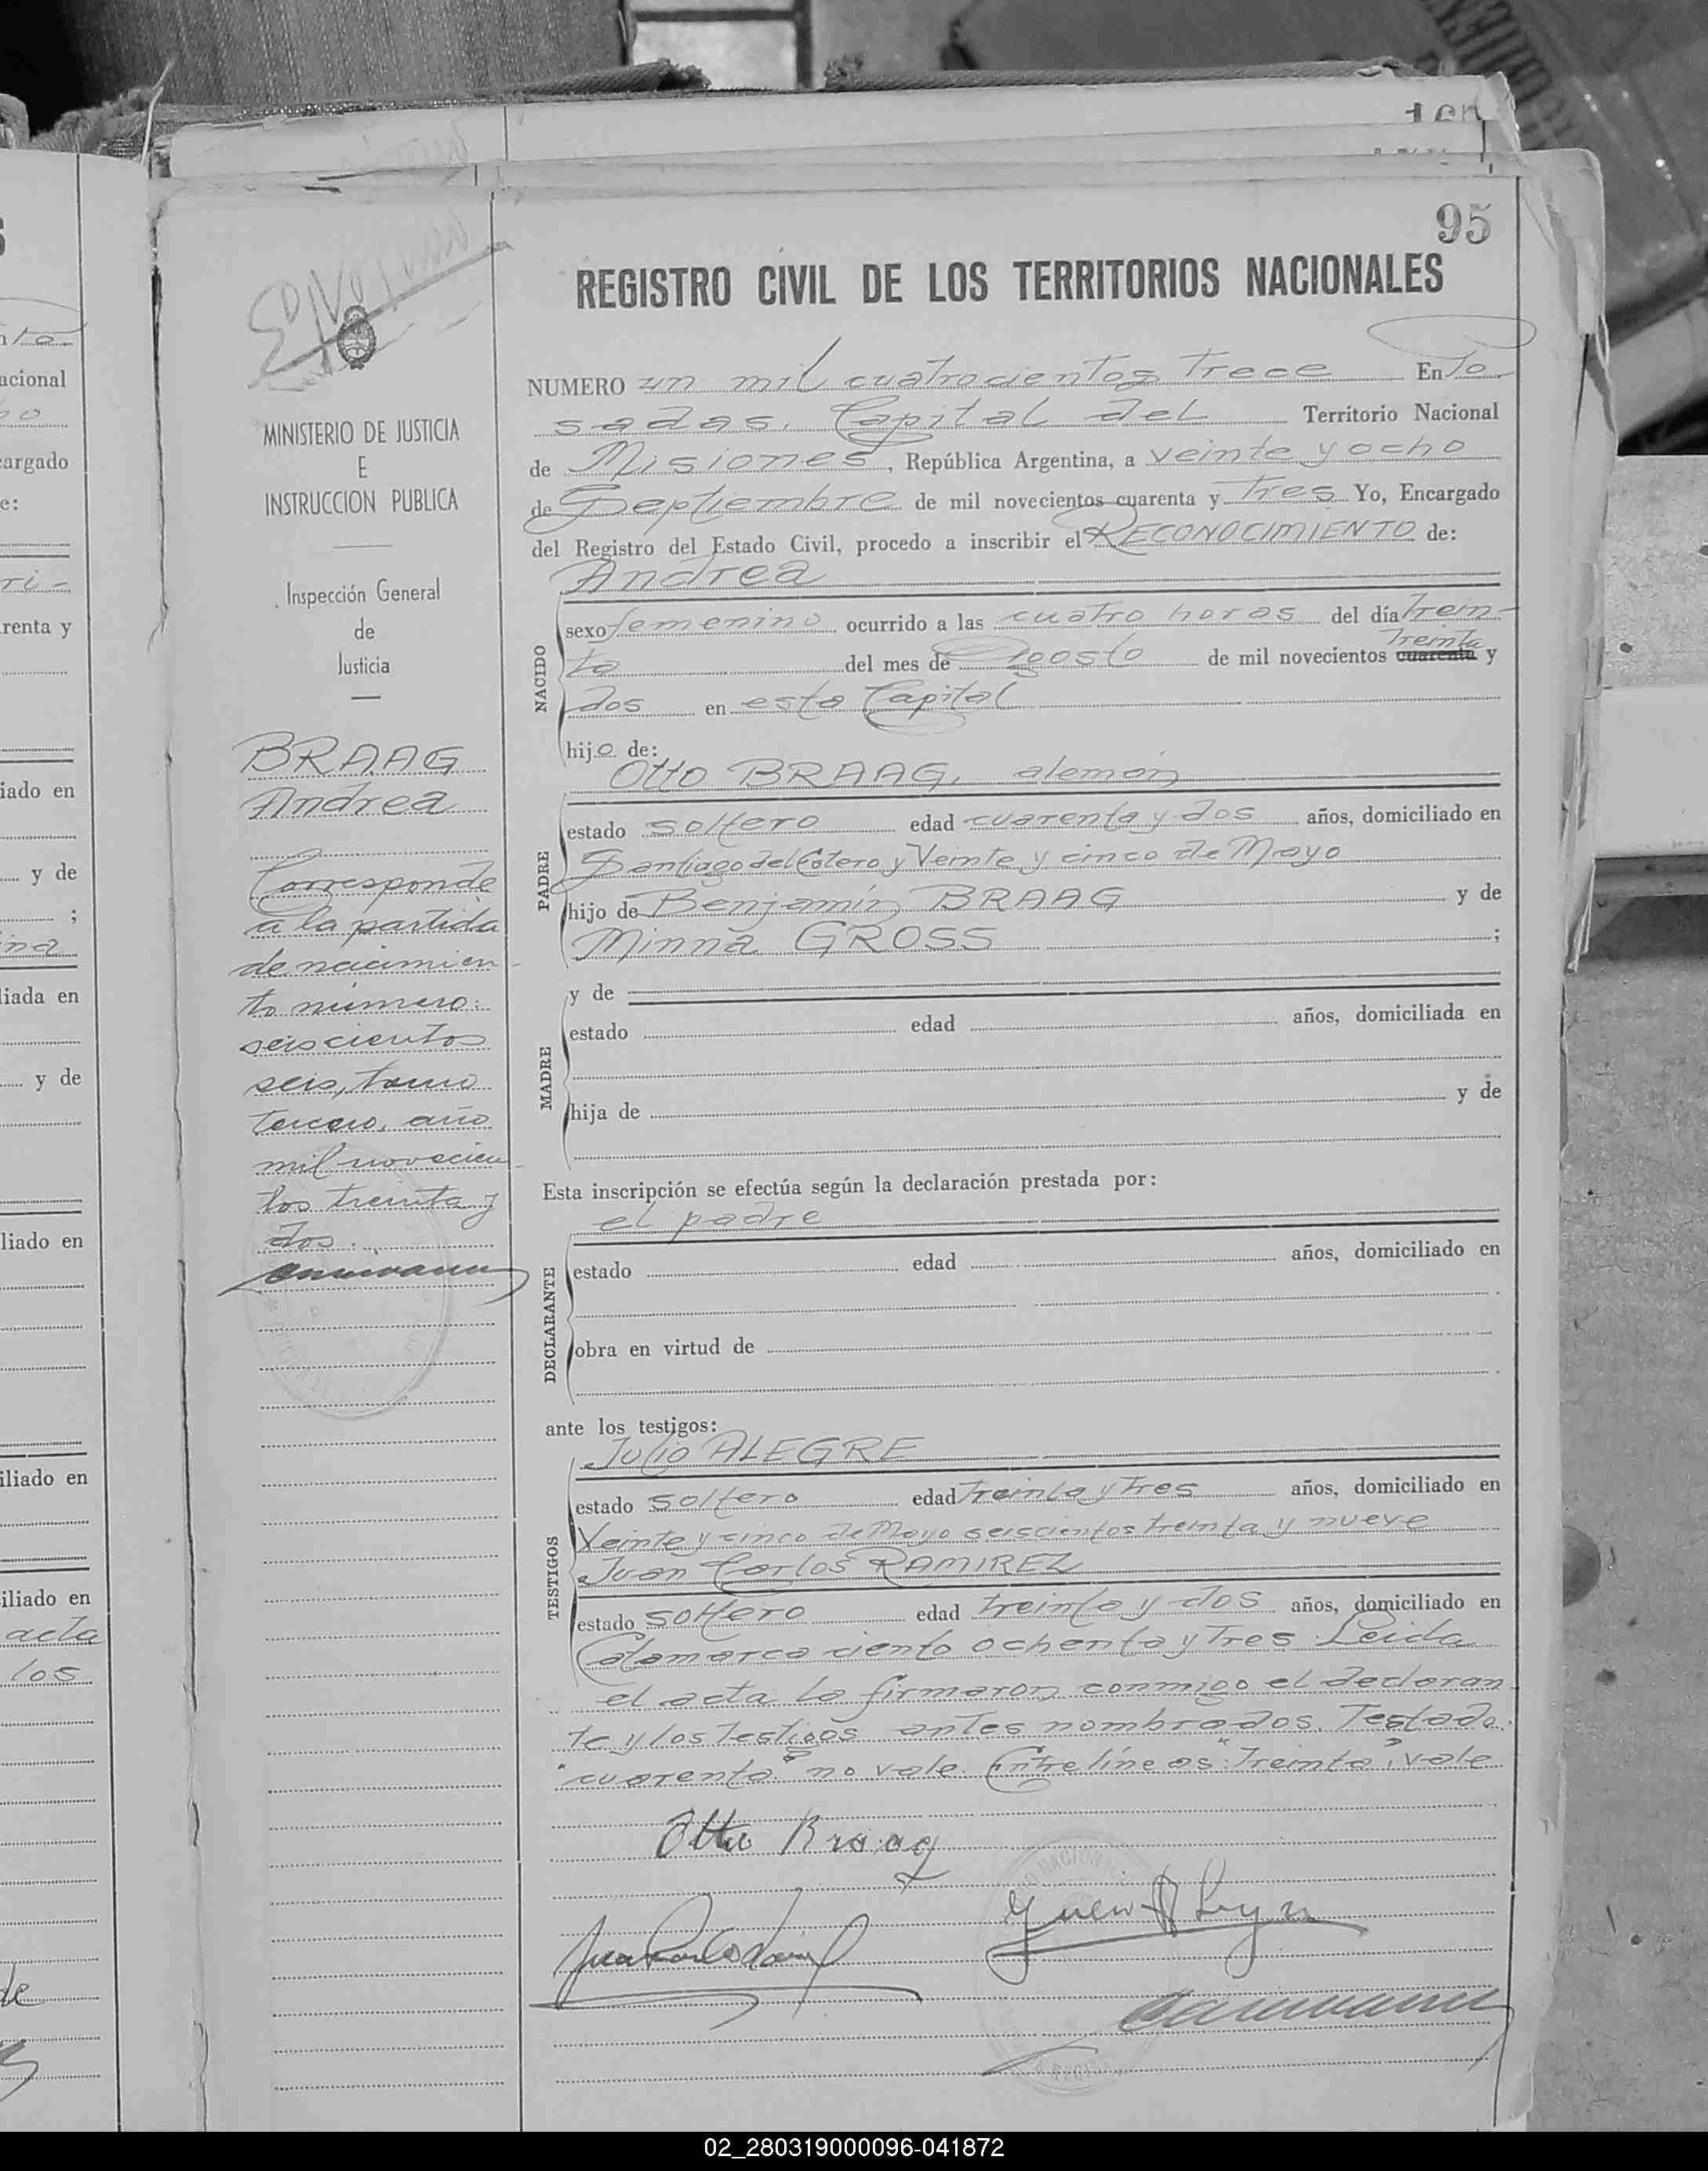 160
95
REGISTRO CIVIL DE LOS TERRITORIOS NACIONALES
NUMERO un mil cuatrocientos trece En Po-
sadas, Capital del Territorio Nacional
de Misiones, República Argentina, a veinte y ocho
de Septiembre de mil novecientos cuarenta y tres Yo, Encargado
del Registro del Estado Civil, procedo a inscribir el RECONOCIMIENTO de:
Andrea
NACIDO
sexo femenino ocurrido a las cuatro horas del día trein-
treinta
ta del mes de Agosto de mil novecientos cuarenta y
dos en esta Capital
hijo de:
Otto BRAAG, alemán
PADRE
estado soltero edad cuarenta y dos años, domiciliado en
Santiago del Estero y Veinte y cinco de Mayo
hijo de Benjamín BRAAG y de
Minna GROSS ;
MADRE
y de
estado edad años, domiciliada en
hija de y de
Esta inscripción se efectúa según la declaración prestada por:
el padre
DECLARANTE
estado edad años, domiciliado en
obra en virtud de
ante los testigos:
Julio ALEGRE
TESTIGOS
estado soltero edad treinta y tres años, domiciliado en
Veinte y cinco de Mayo seiscientos treinta y nueve
Juan Carlos RAMIREZ
estado soltero edad treinta y dos años, domiciliado en
Catamarca ciento ochenta y tres. Leida
el acta la firmaron conmigo el declaran-
te y los testigos antes nombrados. Testado:
"cuarenta" no vale. Entre líneas: "treinta", vale
Otto Braag
MINISTERIO DE JUSTICIA
E
INSTRUCCION PUBLICA
Inspección General
de
Justicia
BRAAG
Andrea
Corresponde
a la partida
de nacimien-
to número:
seiscientos
seis, tomo
tercero, año
mil novecien-
tos treinta y
dos.
acional
cargado
e:
renta y
iado en
y de
;
liada en
y de
liado en
iliado en
iliado en
acta
los
de
02_280319000096-041872